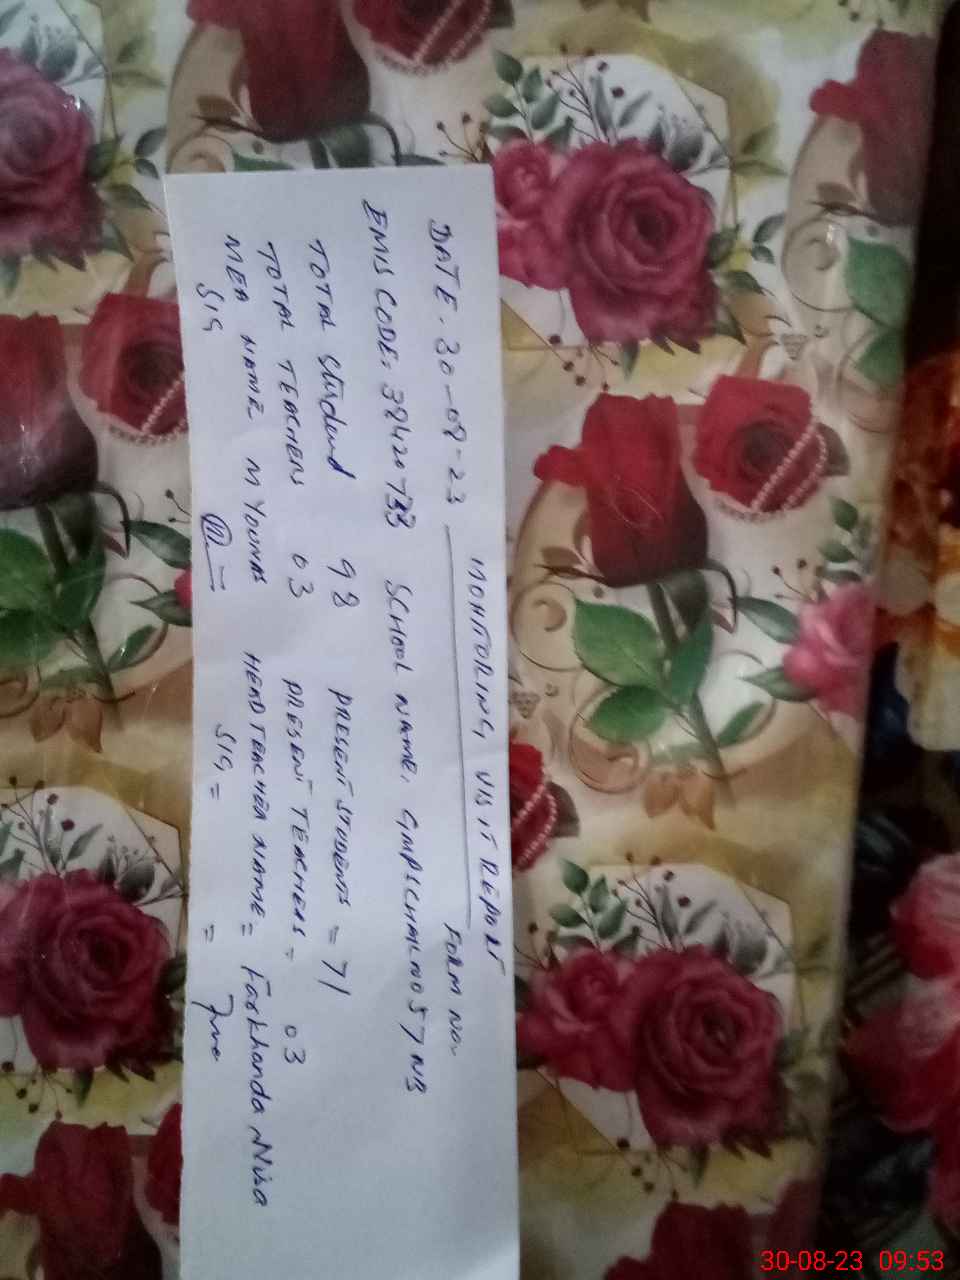 MONTORING VISIT REPORT
DATE. 30-08-23 FORM NO.
EMIS CODE. 38420733 SCHOOL NAME. GMPS CHAK NO 57 NB
TOTAL Student 98 PRESENT STUDENTS = 71
TOTAL TEACHERS 03 PRESENT TEACHERS = 03
MEA NAME M YOUNAS HEAD TEACHER NAME = Farkhanda Nisa
SIG SIG = =
30-08-23 09:53